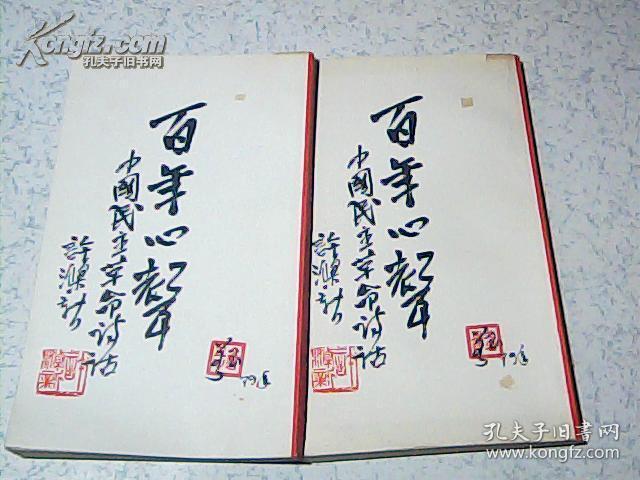 Kongfz.com
孔夫子旧书网
百年心声
中國民主革命詩话
許渊
百年心声
中國民主革命詩话
許渊
孔夫子旧书网
www.kongfz.com